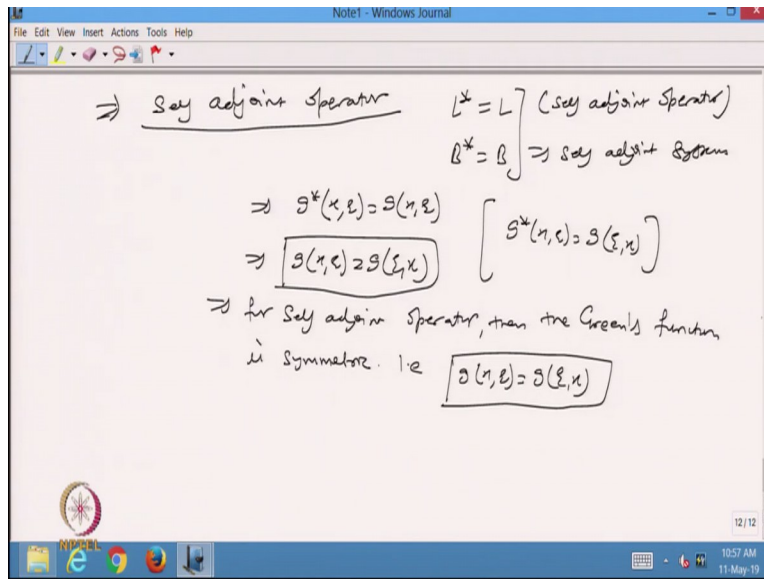 Note1 - Windows Journal
File Edit View Insert Actions Tools Help
⇒ Self adjoint operator
L* = L ] (self adjoint operator)
B* = B ] ⇒ self adjoint system
⇒ g*(x,ξ) = g(x,ξ) [ g*(x,ξ) = g(ξ,x) ]
⇒ g(x,ξ) = g(ξ,x)
⇒ for self adjoint operator, then the Green's function
is symmetric. i.e g(x,ξ) = g(ξ,x)
12/12
NPTEL
10:57 AM
11-May-19